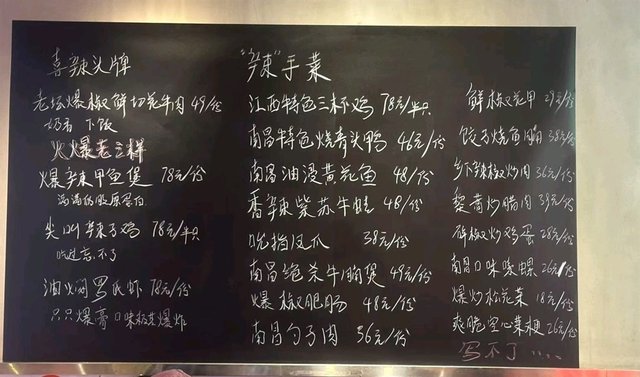 喜辣头牌
老坛爆椒鲜切花牛肉 49/份
好看 下饭
火爆老三样
爆辣甲鱼煲 78元/份
满满的胶原蛋白
尖叫辣子鸡 78元/半只
吃过忘不了
油焖罗氏虾 78元/份
只只爆膏 口味极其爆炸
"辣"手菜
江西特色三杯鸡 78元/半只
南昌特色烧青头鸭 46元/份
南昌油浸黄花鱼 48/份
香辣紫苏牛蛙 48/份
吮指凤爪 38元/份
南昌绝杀牛腩煲 49元/份
爆椒肥肠 48元/份
南昌勺子肉 36元/份
鲜椒花甲 29元/份
饺子烧鱼 38元/份
乡下辣椒炒肉 36元/份
藜蒿炒腊肉 39元/份
碎椒炒鸡蛋 28元/份
南昌口味嗦螺 26元/份
爆炒松花菜 18元/份
爽脆空心菜梗 26元/份
写不了....